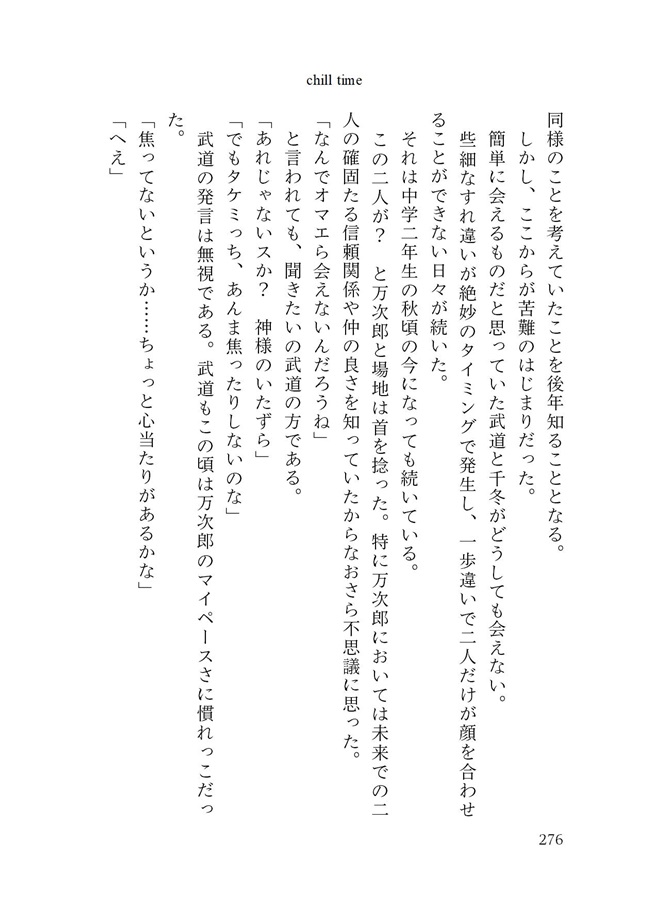 chill time
同様のことを考えていたことを後年知ることとなる。
しかし、ここからが苦難のはじまりだった。
簡単に会えるものだと思っていた武道と千冬がどうしても会えない。
些細なすれ違いが絶妙のタイミングで発生し、一歩違いで二人だけが顔を合わせ
ることができない日々が続いた。
それは中学二年生の秋頃の今になっても続いている。
この二人が？　と万次郎と場地は首を捻った。特に万次郎においては未来での二
人の確固たる信頼関係や仲の良さを知っていたからなおさら不思議に思った。
「なんでオマエら会えないんだろうね」
と言われても、聞きたいの武道の方である。
「あれじゃないスか？　神様のいたずら」
「でもタケミっち、あんま焦ったりしないのな」
武道の発言は無視である。武道もこの頃は万次郎のマイペースさに慣れっこだっ
た。
「焦ってないというか……ちょっと心当たりがあるかな」
「へえ」
276